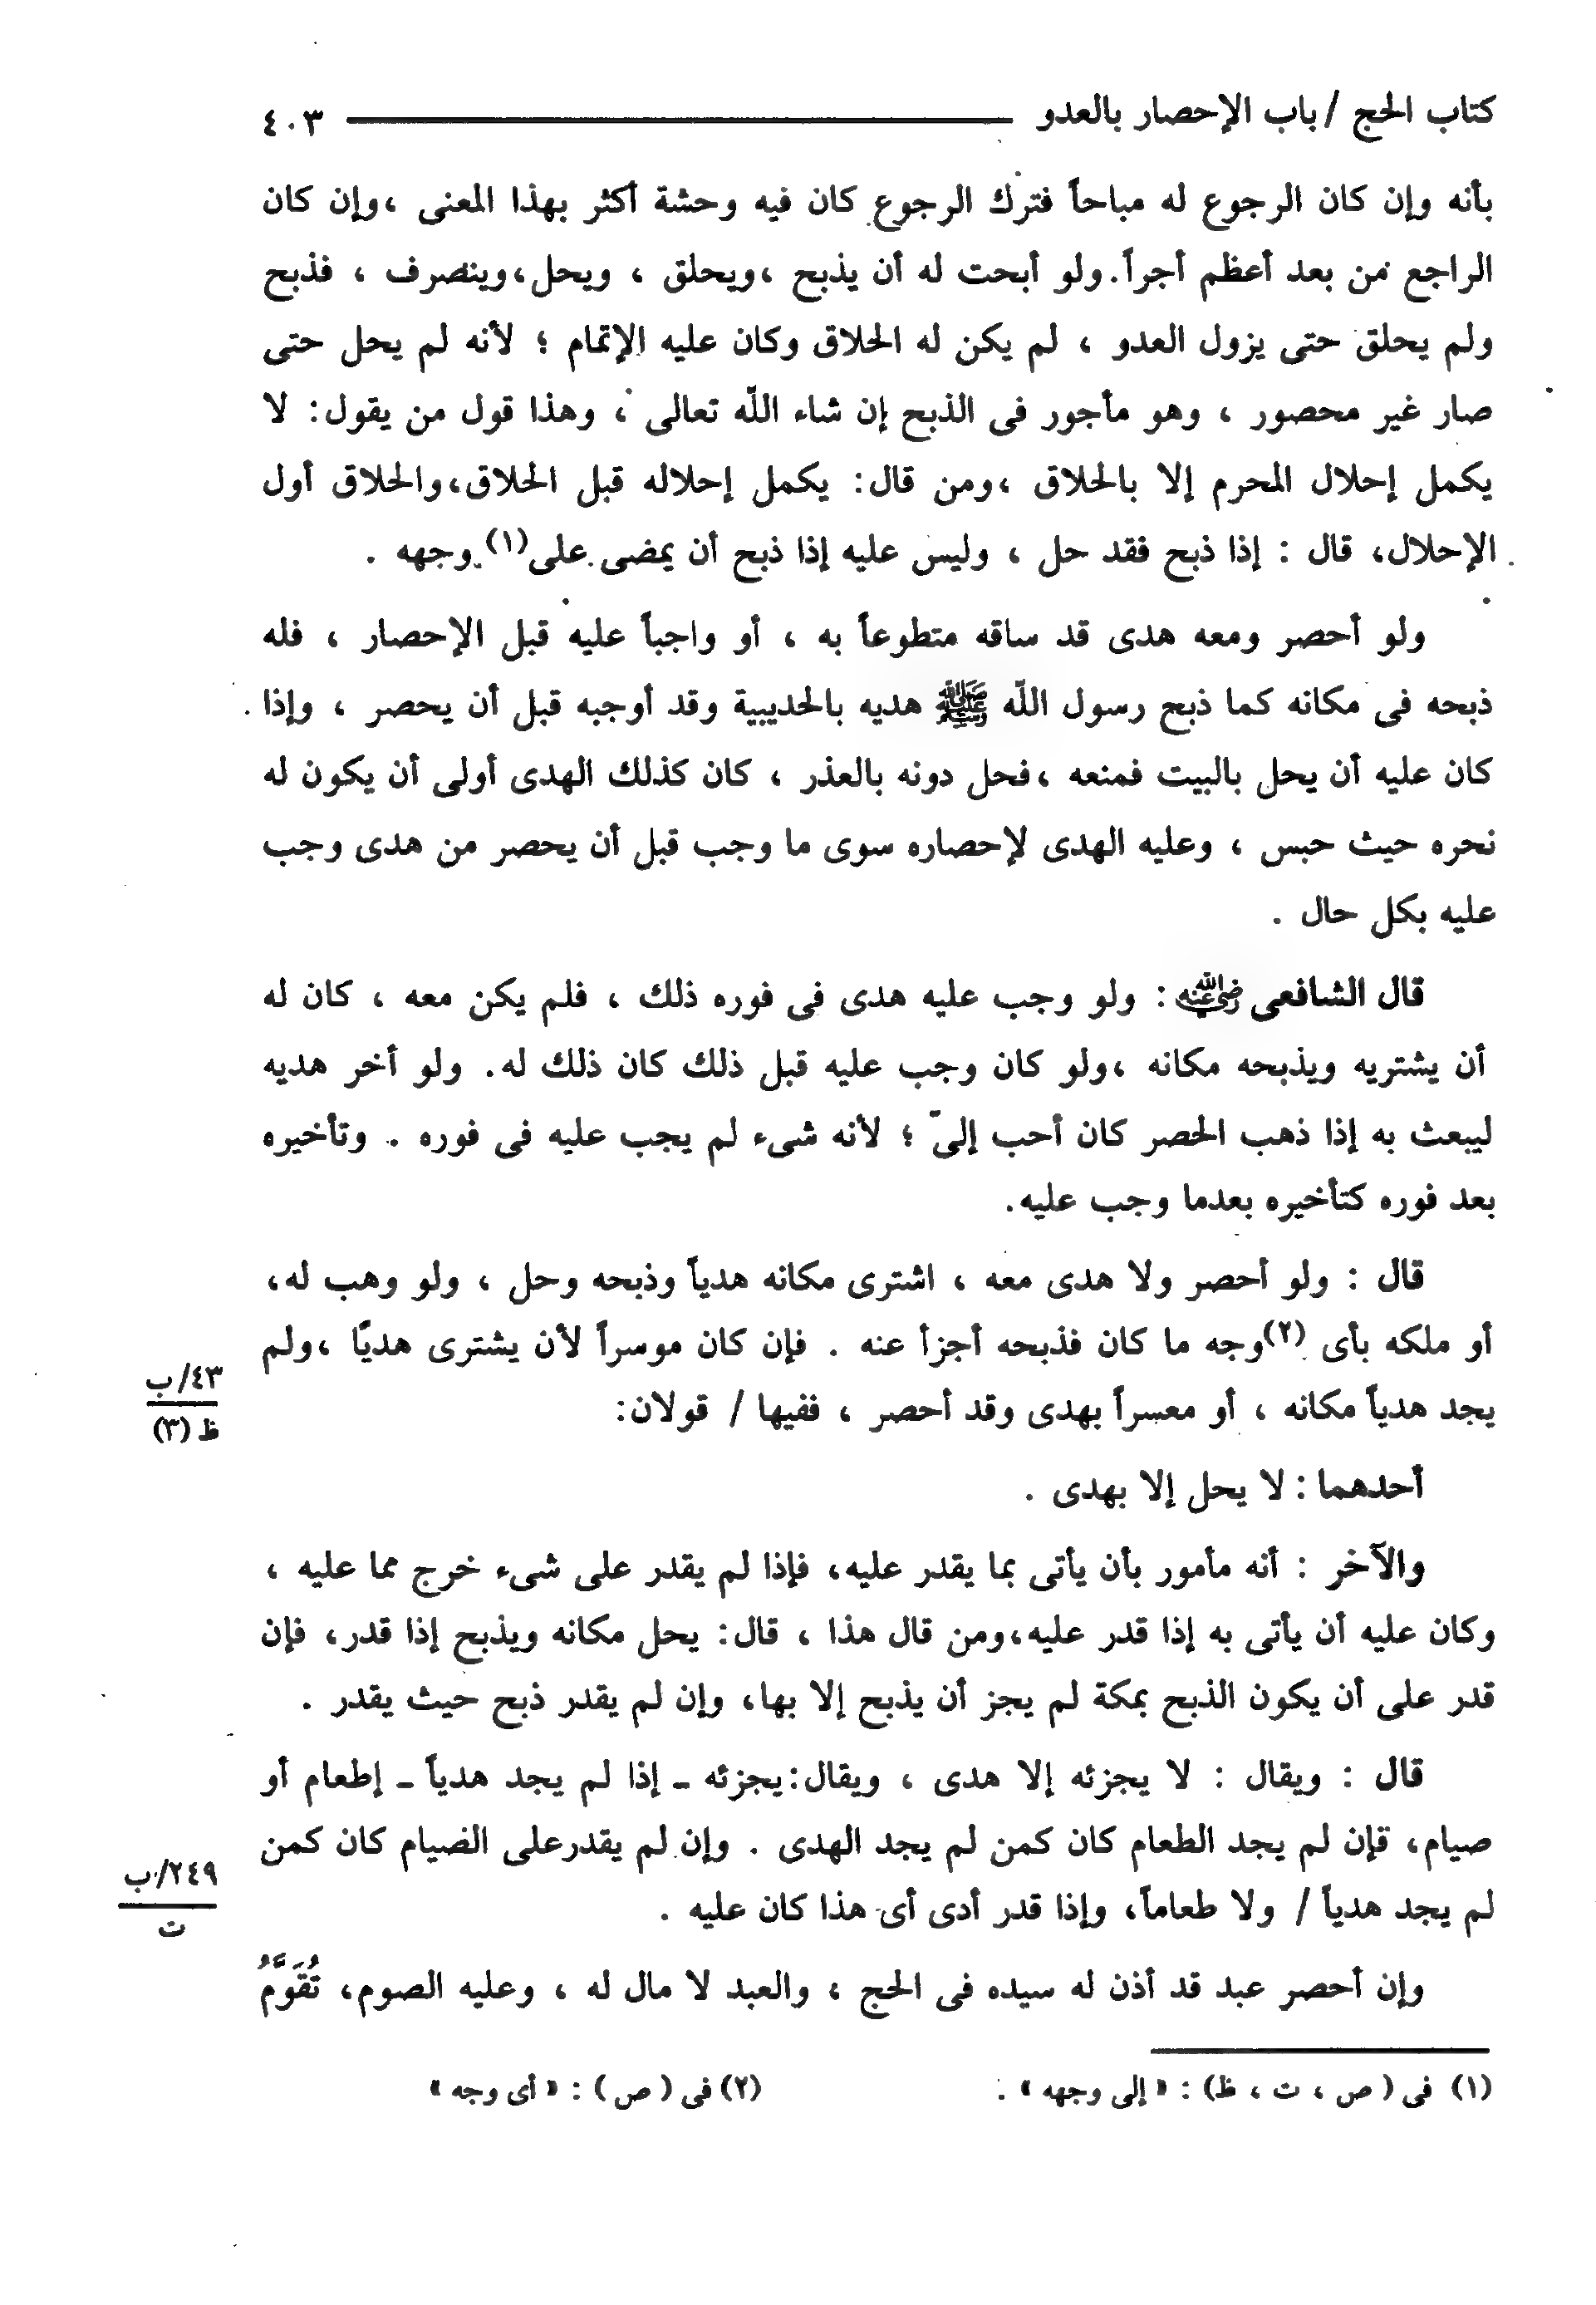 كتاب الحج / باب الإحصار بالعدو ٤٠٣
بأنه وإن كان الرجوع له مباحاً فترك الرجوع كان فيه وحشة أكثر بهذا المعنى ،وإن كان
الراجع من بعد أعظم أجراً. ولو أبحت له أن يذبح ،ويحلق ، ويحل،وينصرف ، فذبح
ولم يحلق حتى يزول العدو ، لم يكن له الحلاق وكان عليه الإتمام ؛ لأنه لم يحل حتى
صار غير محصور ، وهو مأجور فى الذبح إن شاء اللّه تعالى ، وهذا قول من يقول: لا
يكمل إحلال المحرم إلا بالحلاق ،ومن قال: يكمل إحلاله قبل الحلاق،والحلاق أول
الإحلال، قال : إذا ذبح فقد حل ، وليس عليه إذا ذبح أن يمضى على(١) وجهه .
ولو أحصر ومعه هدى قد ساقه متطوعاً به ، أو واجباً عليه قبل الإحصار ، فله
ذبحه فى مكانه كما ذبح رسول اللّه ﷺ هديه بالحديبية وقد أوجبه قبل أن يحصر ، وإذا
كان عليه أن يحل بالبيت فمنعه ،فحل دونه بالعذر ، كان كذلك الهدى أولى أن يكون له
نحره حيث حبس ، وعليه الهدى لإحصاره سوى ما وجب قبل أن يحصر من هدى وجب
عليه بكل حال .
قال الشافعى رضي الله عنه : ولو وجب عليه هدى فى فوره ذلك ، فلم يكن معه ، كان له
أن يشتريه ويذبحه مكانه ،ولو كان وجب عليه قبل ذلك كان ذلك له. ولو أخر هديه
ليبعث به إذا ذهب الحصر كان أحب إلىّ ؛ لأنه شىء لم يجب عليه فى فوره . وتأخيره
بعد فوره كتأخيره بعدما وجب عليه.
قال : ولو أحصر ولا هدى معه ، اشترى مكانه هدياً وذبحه وحل ، ولو وهب له،
أو ملكه بأى (٢)وجه ما كان فذبحه أجزأ عنه . فإن كان موسراً لأن يشترى هديًا ،ولم
٤٣/ب
يجد هدياً مكانه ، أو معسراً بهدى وقد أحصر ، ففيها / قولان:
ظ (٣)
أحدهما : لا يحل إلا بهدى .
والآخر : أنه مأمور بأن يأتى بما يقدر عليه، فإذا لم يقدر على شىء خرج مما عليه ،
وكان عليه أن يأتى به إذا قدر عليه،ومن قال هذا ، قال: يحل مكانه ويذبح إذا قدر، فإن
قدر على أن يكون الذبح بمكة لم يجز أن يذبح إلا بها، وإن لم يقدر ذبح حيث يقدر .
قال : ويقال : لا يجزئه إلا هدى ، ويقال:يجزئه ـ إذا لم يجد هدياً ـ إطعام أو
صيام، فإن لم يجد الطعام كان كمن لم يجد الهدى . وإن لم يقدرعلى الصيام كان كمن
٢٤٩/ب
لم يجد هدياً / ولا طعاماً، وإذا قدر أدى أى هذا كان عليه .
ت
وإن أحصر عبد قد أذن له سيده فى الحج ، والعبد لا مال له ، وعليه الصوم، تُقَوَّمُ
(١) فى ( ص ، ت ، ظ) : « إلى وجهه » . (٢) فى ( ص ) : « أى وجه »